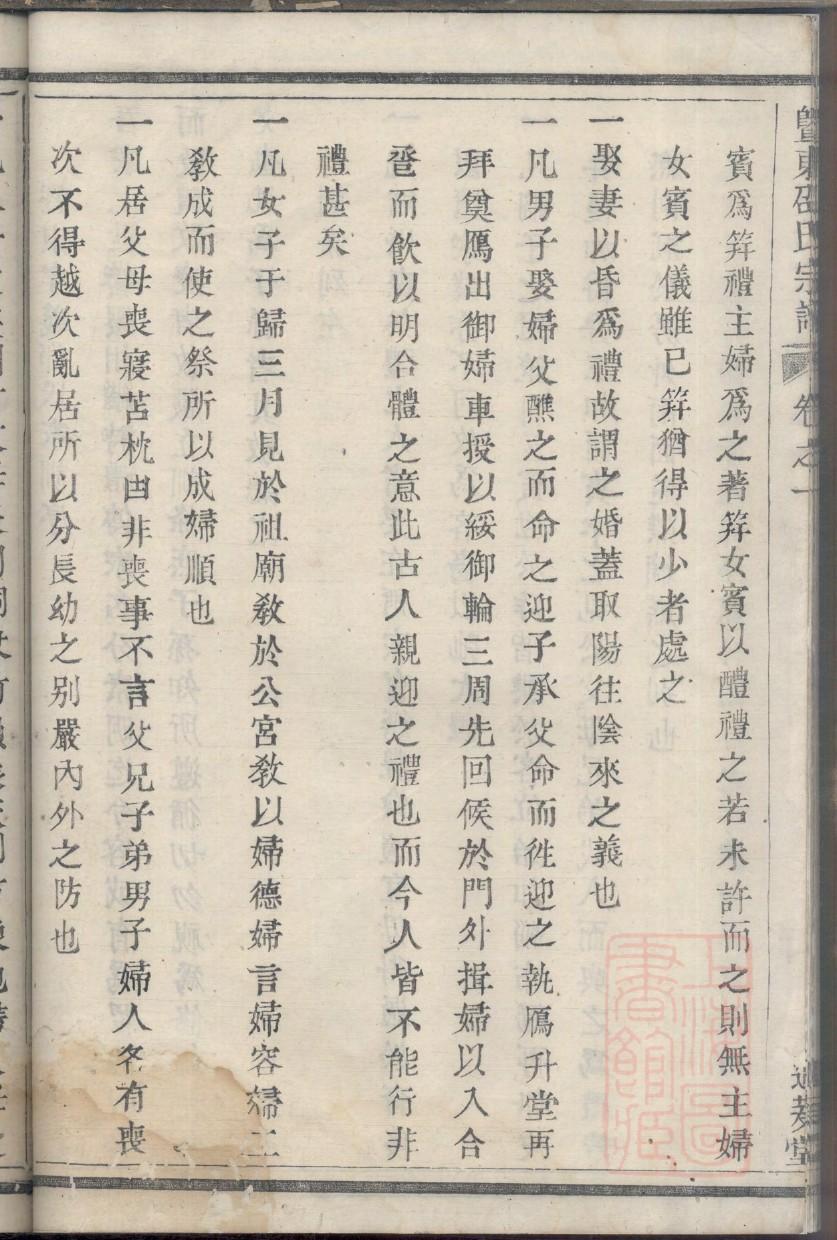 暨東邵氏宗譜 卷之一
賓爲筓禮主婦爲之著筓女賓以醴禮之若未許而之則無主婦
女賓之儀雖已筓猶得以少者處之
一娶妻以昏爲禮故謂之婚蓋取陽往陰來之義也
一凡男子娶婦父醮之而命之迎子承父命而徃迎之執鴈升堂再
拜奠鴈出御婦車授以綏御輪三周先回候於門外揖婦以入合
卺而飮以明合體之意此古人親迎之禮也而今人皆不能行非
禮甚矣
一凡女子于歸三月見於祖廟敎於公宮敎以婦德婦言婦容婦工
敎成而使之祭所以成婦順也
一凡居父母喪寢苫枕凷非喪事不言父兄子弟男子婦人各有喪
次不得越次亂居所以分長幼之別嚴內外之防也
上海圖書館藏